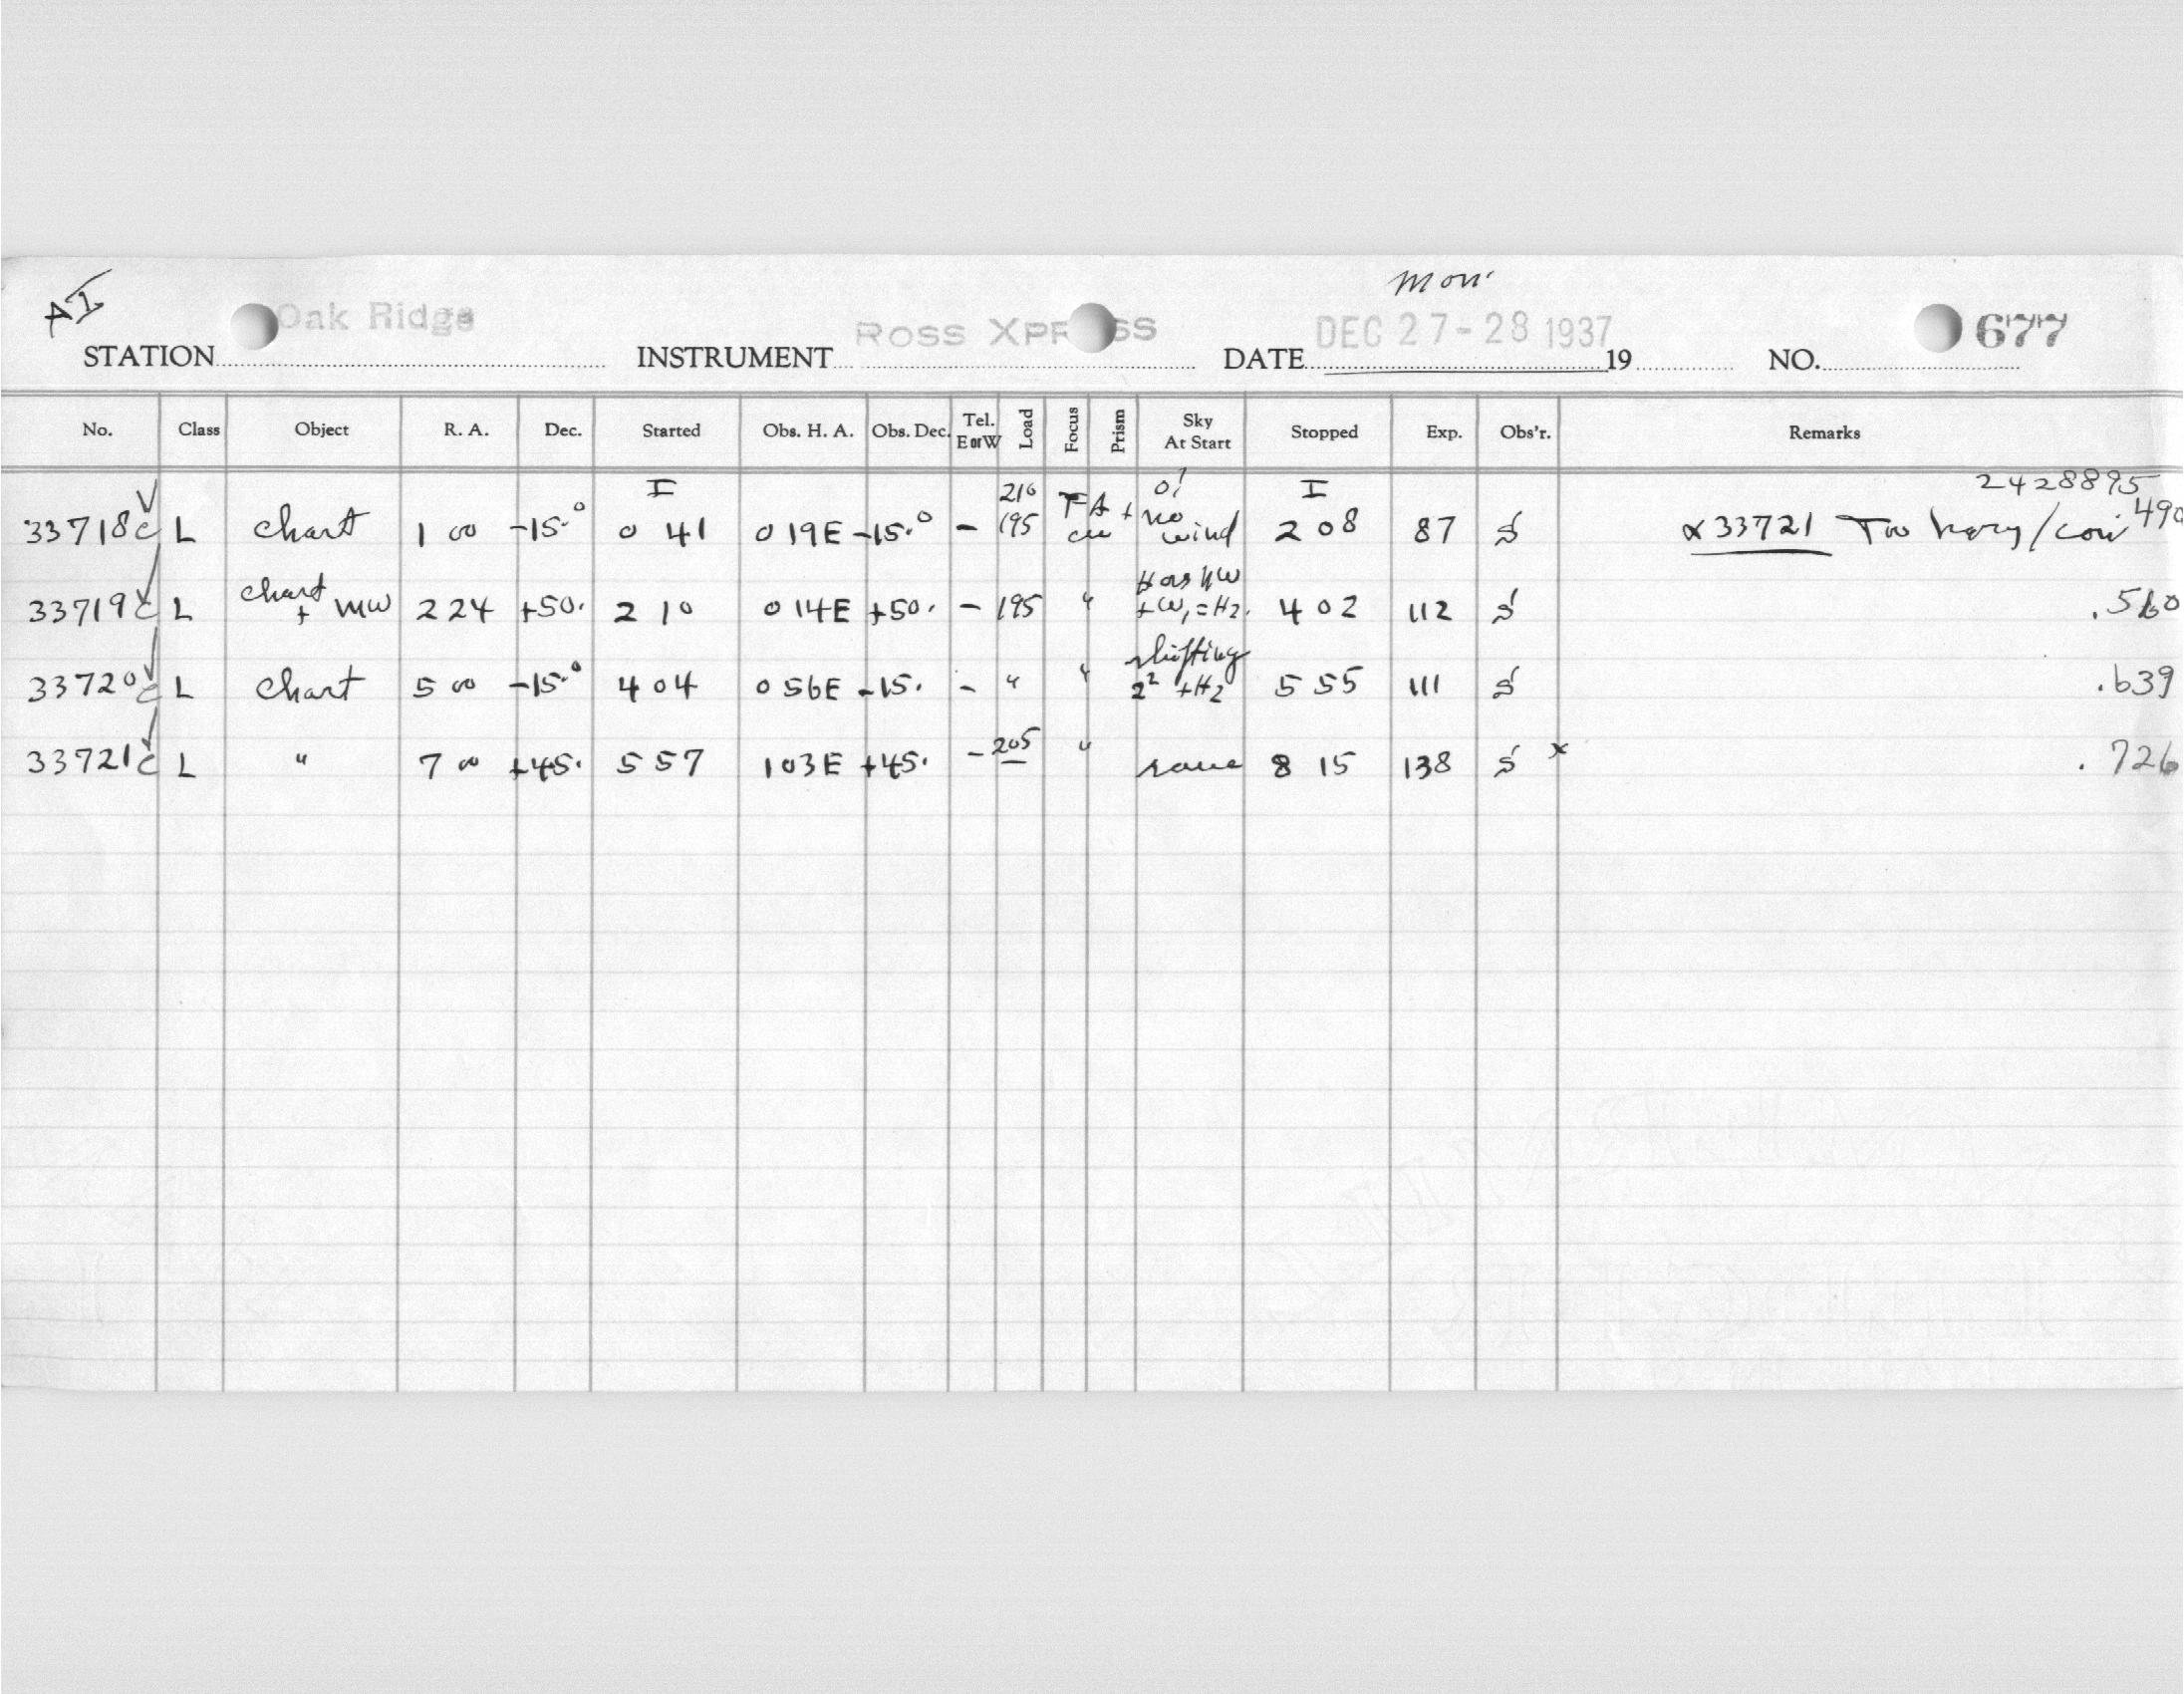 AI Mon.
STATION Oak Ridge INSTRUMENT ROSS XPRESS DATE DEC 27-28 1937 19 NO. 677
No. Class Object R. A. Dec. Started Obs. H. A. Obs. Dec. Tel. E or W Load Focus Prism Sky At Start Stopped Exp. Obs'r. Remarks
33718c L chart 1 00 -15.° I 0 41 0 19E -15.° - 210 195 FA + 0! no wind I 2 08 87 S x 33721 Too hazy / 2428895 .490
33719c L chart + MW 2 24 +50. 2 10 0 14E +50. - 195 " + = H2. 4 02 112 S .560
33720c L chart 5 00 -15.° 4 04 0 56E -15. - " " shifting 2² + H2 5 55 111 S .639
33721c L " 7 00 +45. 5 57 1 03E +45. - 205 " same 8 15 138 S x .726